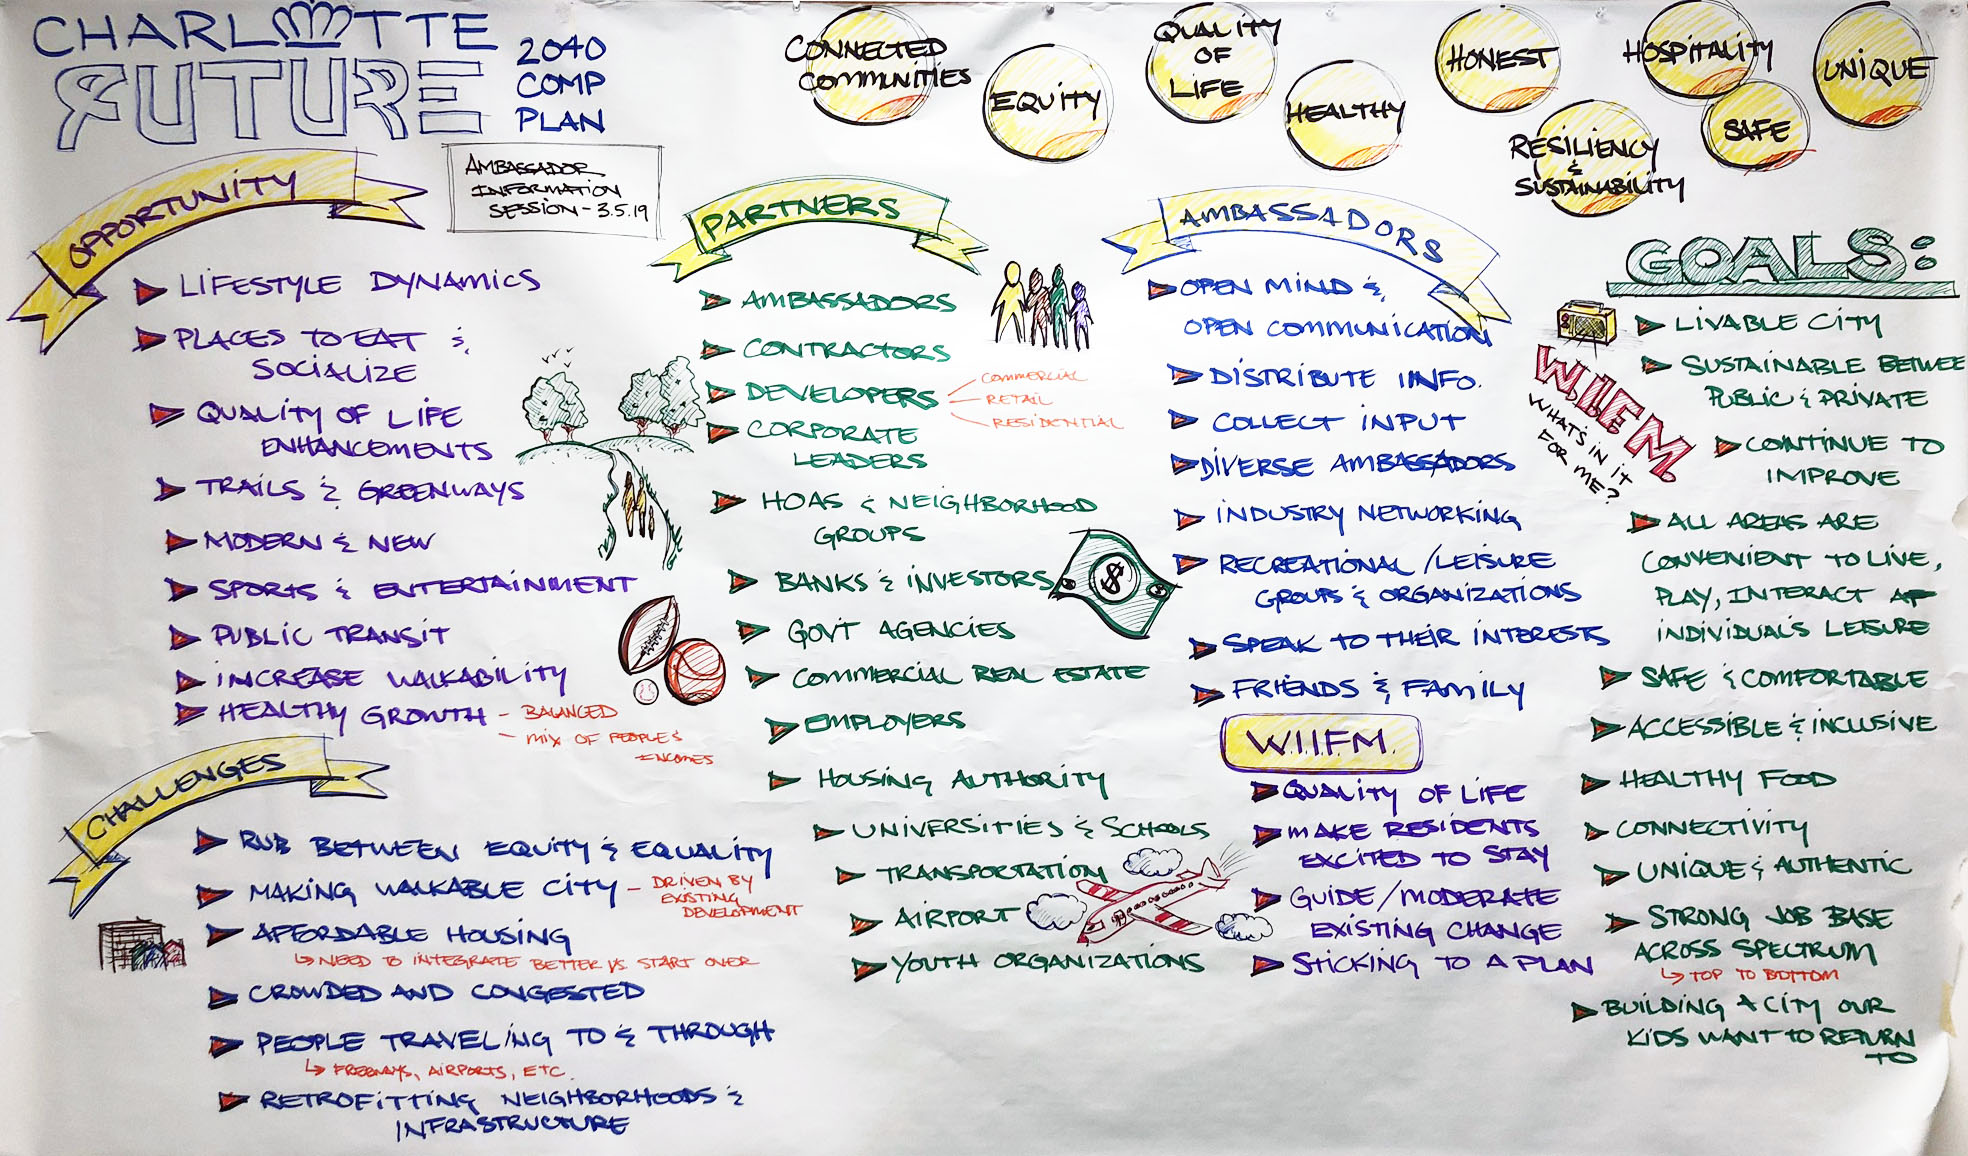 CHARLOTTE
FUTURE
2040
COMP
PLAN
AMBASSADOR
INFORMATION
SESSION - 3.5.19
CONNECTED
COMMUNITIES
EQUITY
QUALITY
OF
LIFE
HEALTHY
HONEST
RESILIENCY
&
SUSTAINABILITY
HOSPITALITY
SAFE
UNIQUE
OPPORTUNITY
LIFESTYLE DYNAMICS
PLACES TO EAT &
SOCIALIZE
QUALITY OF LIFE
ENHANCEMENTS
TRAILS & GREENWAYS
MODERN & NEW
SPORTS & ENTERTAINMENT
PUBLIC TRANSIT
INCREASE WALKABILITY
HEALTHY GROWTH - BALANCED
- MIX OF PEOPLE &
INCOMES
CHALLENGES
RUB BETWEEN EQUITY & EQUALITY
MAKING WALKABLE CITY - DRIVEN BY
EXISTING
DEVELOPMENT
AFFORDABLE HOUSING
↳ NEED TO INTEGRATE BETTER VS. START OVER
CROWDED AND CONGESTED
PEOPLE TRAVELING TO & THROUGH
↳ FREEWAYS, AIRPORTS, ETC.
RETROFITTING NEIGHBORHOODS &
INFRASTRUCTURE
PARTNERS
AMBASSADORS
CONTRACTORS
DEVELOPERS
COMMERCIAL
RETAIL
RESIDENTIAL
CORPORATE
LEADERS
HOAS & NEIGHBORHOOD
GROUPS
BANKS & INVESTORS
$
GOVT AGENCIES
COMMERCIAL REAL ESTATE
EMPLOYERS
HOUSING AUTHORITY
UNIVERSITIES & SCHOOLS
TRANSPORTATION
AIRPORT
YOUTH ORGANIZATIONS
AMBASSADORS
OPEN MIND &
OPEN COMMUNICATION
DISTRIBUTE INFO.
COLLECT INPUT
DIVERSE AMBASSADORS
INDUSTRY NETWORKING
RECREATIONAL/LEISURE
GROUPS & ORGANIZATIONS
SPEAK TO THEIR INTERESTS
FRIENDS & FAMILY
W.I.I.F.M.
QUALITY OF LIFE
MAKE RESIDENTS
EXCITED TO STAY
GUIDE/MODERATE
EXISTING CHANGE
STICKING TO A PLAN
W.I.I.F.M.
WHAT'S IN IT
FOR ME?
GOALS:
LIVABLE CITY
SUSTAINABLE BETWEE
PUBLIC & PRIVATE
CONTINUE TO
IMPROVE
ALL AREAS ARE
CONVENIENT TO LIVE,
PLAY, INTERACT
INDIVIDUALS LEISURE
SAFE & COMFORTABLE
ACCESSIBLE & INCLUSIVE
HEALTHY FOOD
CONNECTIVITY
UNIQUE & AUTHENTIC
STRONG JOB BASE
ACROSS SPECTRUM
↳ TOP TO BOTTOM
BUILDING A CITY OUR
KIDS WANT TO RETURN
TO